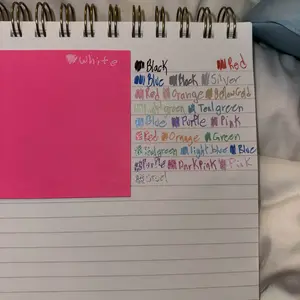 White
Black Red
Blue Black Silver
Red Orange Yellow Gold
green Tealgreen
Blue Purple Pink
Red Orange Green
Tealgreen light blue Blue
Purple DarkPink Pink